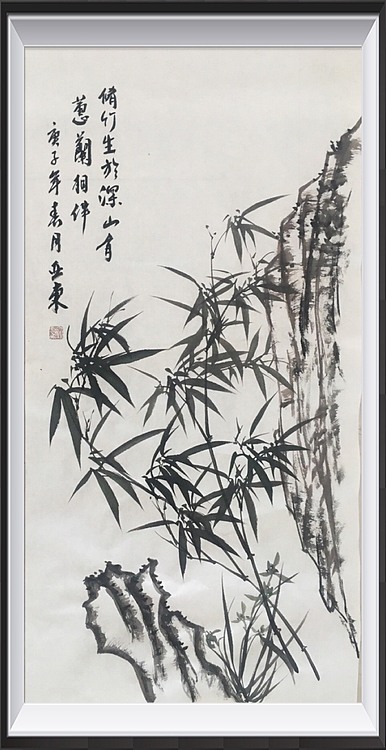 脩竹生於深山有
蕙蘭相伴
庚子年春月亚东